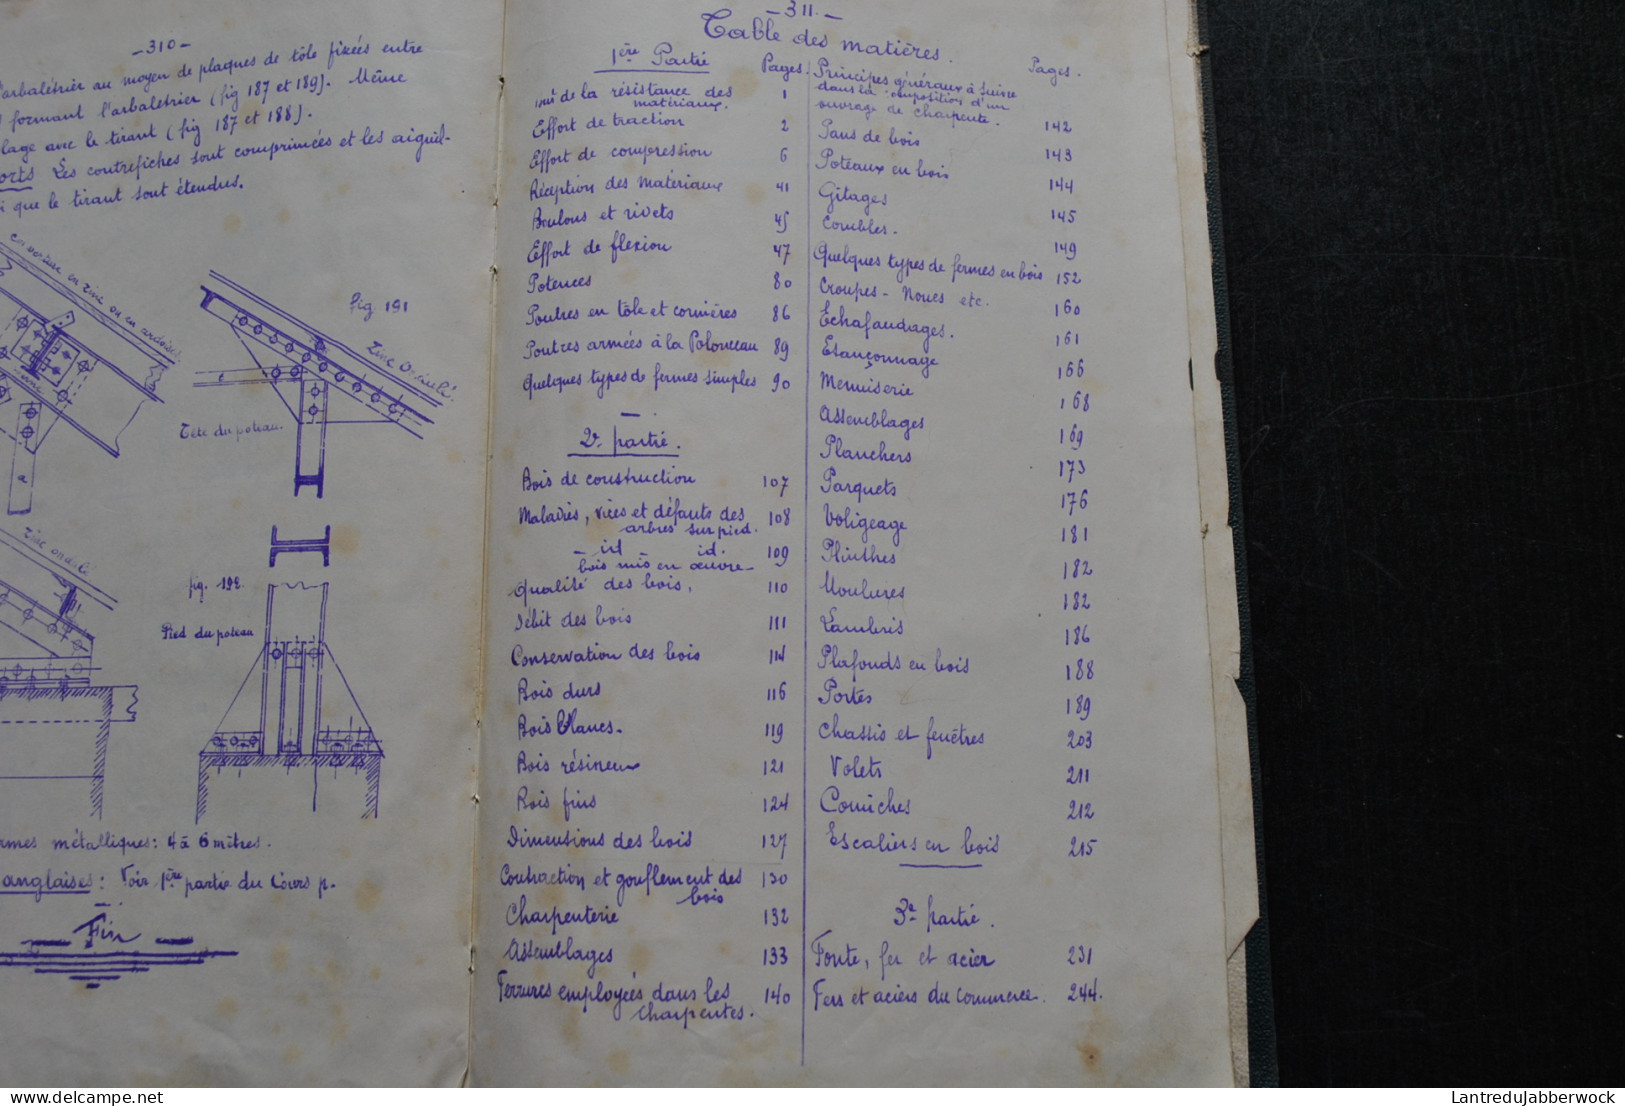 -310-
l'arbalétrier au moyen de plaques de tôle fixées entre
formant l'arbalétrier (fig 187 et 189). Même
lage avec le tirant (fig 187 et 188).
orts Les contrefiches sont comprimées et les aiguil-
i que le tirant sont étendus.
en zinc ou en ardoises
fig 191
Zinc Ondulé.
Tête du poteau.
Zinc ondulé
fig. 192.
Pied du poteau
rmes métalliques: 4 à 6 mètres.
anglaises: Voir 1ère partie du Cours p.
Fin
-311.-
Table des matières.
1ère Partie Pages.
de la résistance des
matériaux. 1
Effort de traction 2
Effort de compression 6
Réception des matériaux 41
Boulons et rivets 45
Effort de flexion 47
Potences 80
Poutres en tôle et cornières 86
Poutres armées à la Polonceau 89
Quelques types de fermes simples 90
2e partie.
Bois de construction 107
Maladies, vices et défauts des
arbres sur pied. 108
- id - id.
bois mis en œuvre 109
Qualité des bois. 110
Débit des bois 111
Conservation des bois 114
Bois durs 116
Bois Blancs. 119
Bois résineux 121
Bois fins 124
Dimensions des bois 127
Contraction et gonflement des
bois 130
Charpenterie 132
Assemblages 133
Ferrures employées dans les
charpentes. 140
Pages.
Principes généraux à suivre
dans la composition d'un
ouvrage de charpente. 142
Pans de bois 143
Poteaux en bois 144
Gitages 145
Combles. 149
Quelques types de fermes en bois 152
Croupes - Noues etc. 160
Echafaudages. 161
Etançonnage 166
Menuiserie 168
Assemblages 169
Planchers 173
Parquets 176
Voligeage 181
Plinthes 182
Moulures 182
Lambris 186
Plafonds en bois 188
Portes 189
Chassis et fenêtres 203
Volets 211
Corniches 212
Escaliers en bois 215
3e partie.
Fonte, fer et acier 231
Fers et aciers du commerce. 244.
LantreduJabberwock